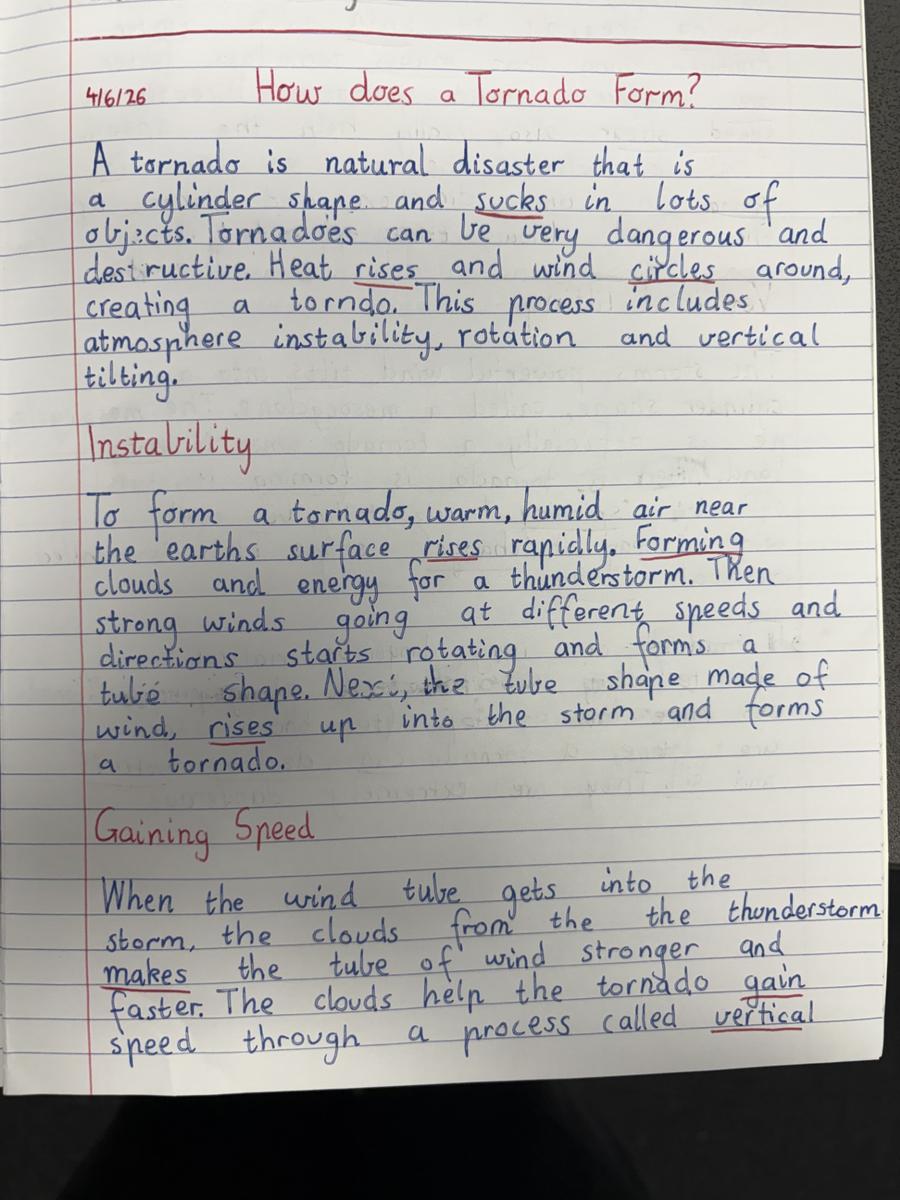 4/6/26 How does a Tornado Form?
A tornado is natural disaster that is
a cylinder shape and sucks in lots of
objects. Tornadoes can be very dangerous and
destructive. Heat rises and wind circles around,
creating a torndo. This process includes
atmosphere instability, rotation and vertical
tilting.
Instability
To form a tornado, warm, humid air near
the earths surface rises rapidly. Forming
clouds and energy for a thunderstorm. Then
strong winds going at different speeds and
directions starts rotating and forms a
tube shape. Next, the tube shape made of
wind, rises up into the storm and forms
a tornado.
Gaining Speed
When the wind tube gets into the
storm, the clouds from the the thunderstorm
makes the tube of wind stronger and
faster. The clouds help the tornado gain
speed through a process called vertical